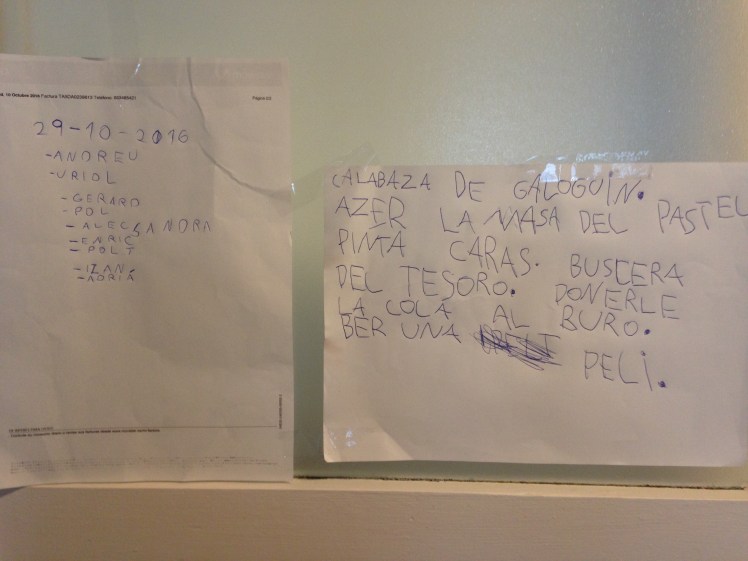 Página 2/3
29-10-2016
-ANDREU
-URIOL
-GERARD
-POL
-ALECSANDRA
-ENRIC
-POL T
-IZAN.
-ADRIÀ
CALABAZA DE GALOGUIN.
AZER LA MASA DEL PASTEL
PINTA CARAS. BUSCERA
DEL TESORO. DONERLE
LA COLA AL BURO.
BER UNA PELI.